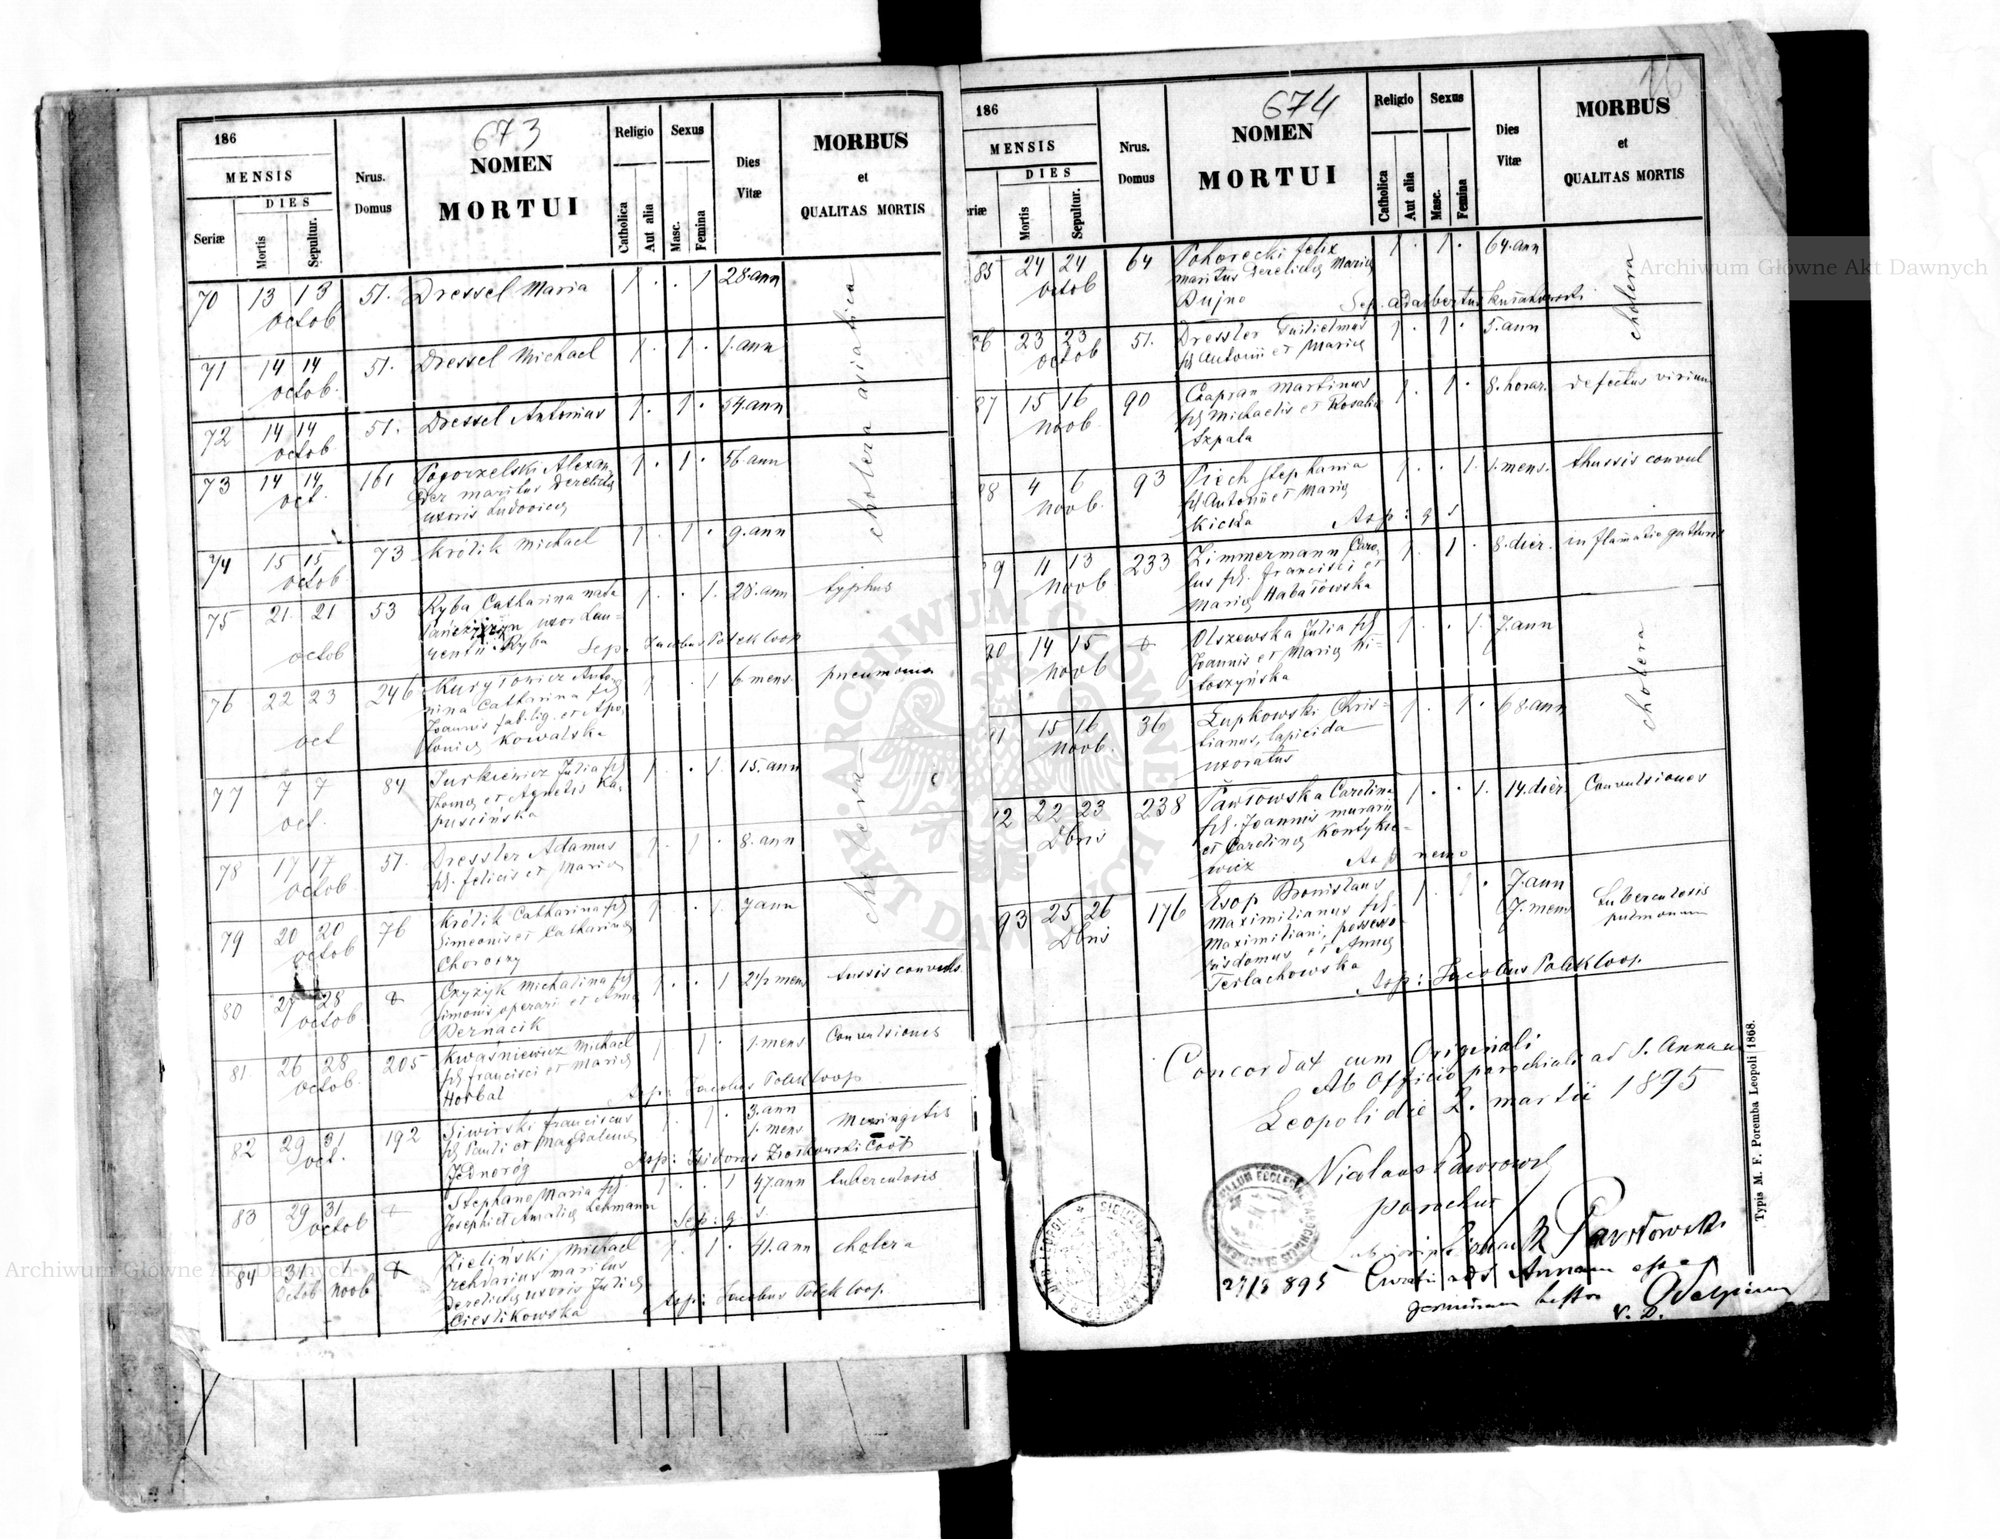 673
186
MENSIS
DIES
Seriæ
Mortis
Sepultur.
Nrus.
Domus
NOMEN
MORTUI
Religio
Catholica
Aut alia
Sexus
Masc.
Femina
Dies
Vitæ
MORBUS
et
QUALITAS MORTIS
70 13 13 51. Dressel Maria 1 . . 1 28. ann
octob
cholera asiatica
71 14 14 51. Dressel Michael 1 . 1 . 1. ann
octob.
72 14 14 51. Dressel Antonius 1 . 1 . 54. ann
octob.
73 14 14 161 Pogorzelski Alexan
oct. der maritus derelictæ 1 . 1 . 56 ann
uxoris Ludovicæ
74 15 15 73 Królik Michael 1 . 1 . 9. ann
octob
75 21 21 53 Ryba Catharina nata 1 . . 1. 28. ann typhus
uxor Lau-
octob rentii Ryba Sep. Jacobus Polek Coop
76 22 23 246 Kuryłowicz Anto- 1 . . 1 6 mens pneumonia
nina Catharina fil
oct Joannis fab. lig. et Apo
loniæ Kowalska
77 7 7 84 Jurkiewicz Julia fil 1 . . 1. 15. ann
oct. Thomæ et Agnetis Ka
puścińska
cholera
78 17 17 51. Dressler Adamus 1 . 1 . 8. ann
octob. fil. Felicis et Mariæ
79 20 20 76 Królik Catharina fil 1 . . 1. 7 ann
octob Simeonis et Catharinæ
Chorozy
80 27 28 Czyżyk Michalina fil 1 . . 1 2 1/2 mens tussis convuls.
octob Simonis operarii et Annæ
Bernacik
81. 26 28 205 Kwaśniewicz Michael 1 . 1 . 1. mens Convulsiones
octob. fil Francisci et Mariæ
Horbal Asp: Jacobus Polek Coop
82 29 31 192 Siwirski Franciscus 1 . 1 . 3. ann 1. mens Meningitis
oct. fil Pauli et Magdalenæ
Jednoróg Asp: Isidorus Ziołkowski Coop
83 29 31 Stephane Maria fil 1 . . 1 47. ann tuberculosis
octob Josephi et Amaliæ Lehmann Sep: q s.
84 31 1 Zieliński Michael 1 . 1 . 41. ann cholera
octob noob maritus
derelictæ uxoris Juliæ
Cieslikowska Asp: Jacobus Polek Coop.
674
186
MENSIS
DIES
eriæ
Mortis
Sepultur.
Nrus.
Domus
NOMEN
MORTUI
Religio
Catholica
Aut alia
Sexus
Masc.
Femina
Dies
Vitæ
MORBUS
et
QUALITAS MORTIS
85 24 24 64 Pohorecki Felix 1 . 1 . 64. ann
octob maritus derelictæ Mariæ
Dujno Sep. Adalbertus
cholera
86 23 23 51. Dressler Guilielmus 1 . 1 . 5. ann
octob fil Antonii et Mariæ
87 15 16 90 Czapran Martinus 1 . 1 . 8. horar. defectus virium
noob. fil Michaelis et Rosaliæ
Szpala
88 4 6 93 Piech Stephania 1 . . 1. 1. mens. thussis convul
noob. fil Antonii et Mariæ
Kicska Asp: q s
9 11 13 233 Zimmermann Caro- 1 . 1 . 8. dier. inflamatio gutturis
noob lus fil. Francisci et
Mariæ Habałowska
90 14 15 Olszewska Julia fil 1 . . 1. 7. ann
noob Joannis et Mariæ Mi-
łoszyńska
cholera
91 15 16 36 Łupkowski Chris- 1 . 1 . 68. ann
noob. tianus, lapicida
uxoratus
12 22 23 238 Pawłowska Carolina 1 . . 1. 14. dier. Convulsiones
Dbris fil. Joannis murarii
et Carolinæ Kontykie-
wicz Asp nemo
93 25 26 176 Esop Bronislaus 1 . 1 . 7. ann 7. mens tuberculosis pulmonum
Dbris Maximilianus fil.
Maximiliani, possesso
ris domus et Annæ
Terlachowska Asp: Jacobus Polek Coop.
Concordat cum Originali
Ab Officio parochiali ad S. Annam
Leopoli die 2. martii 1895
Nicolaus Pawłowski
parochus
Pawłowski
27/3 895
ad S Annam
V. D.
Typis M. F. Poremba Leopoli 1868.
Archiwum Główne Akt Dawnych
Archiwum Główne Akt Dawnych
ARCHIWUM GŁÓWNE AKT DAWNYCH